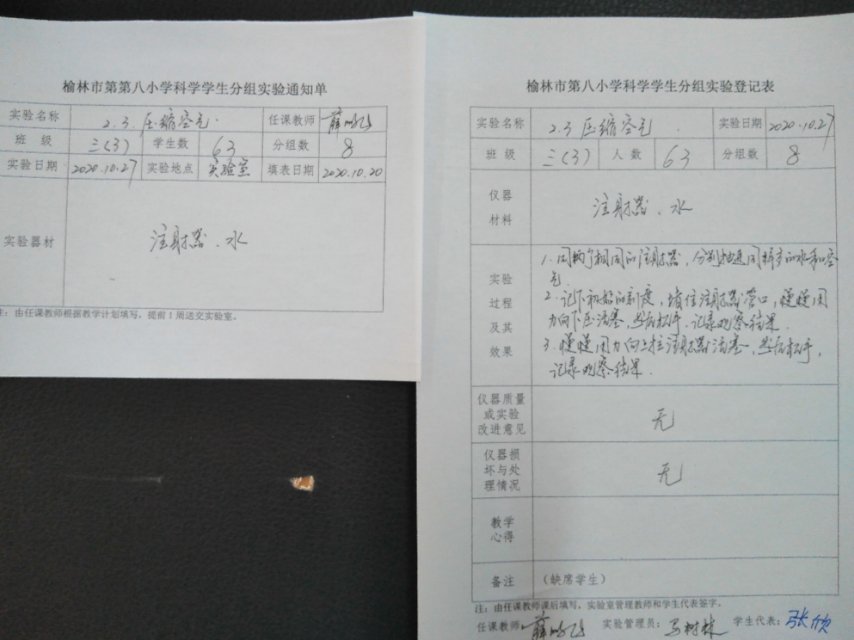 榆林市第第八小学科学学生分组实验通知单
实验名称 2.3.压缩空气. 任课教师 薛
班 级 三(3) 学生数 63 分组数 8
实验日期 2020.10.27 实验地点 实验室 填表日期 2020.10.20
实验器材 注射器、水
注：由任课教师根据教学计划填写，提前1周送交实验室。
榆林市第八小学科学学生分组实验登记表
实验名称 2.3压缩空气. 实验日期 2020.10.27
班 级 三(3) 人 数 63 分组数 8
仪器
材料
注射器、水
实验
过程
及其
效果
1.用两个相同的注射器，分别抽进同样多的水和空
气
2.记下初始的刻度，堵住注射器管口，慢慢用
力向下压活塞，然后松开，记录观察结果.
3.慢慢用力向上拉注射器活塞，然后松开，
记录观察结果.
仪器质量
或实验
改进意见
无
仪器损
坏与处
理情况
无
教学
心得
备注 （缺席学生）
注：由任课教师课后填写，实验室管理教师和学生代表签字。
任课教师: 薛 实验管理员: 马树林 学生代表: 张欣